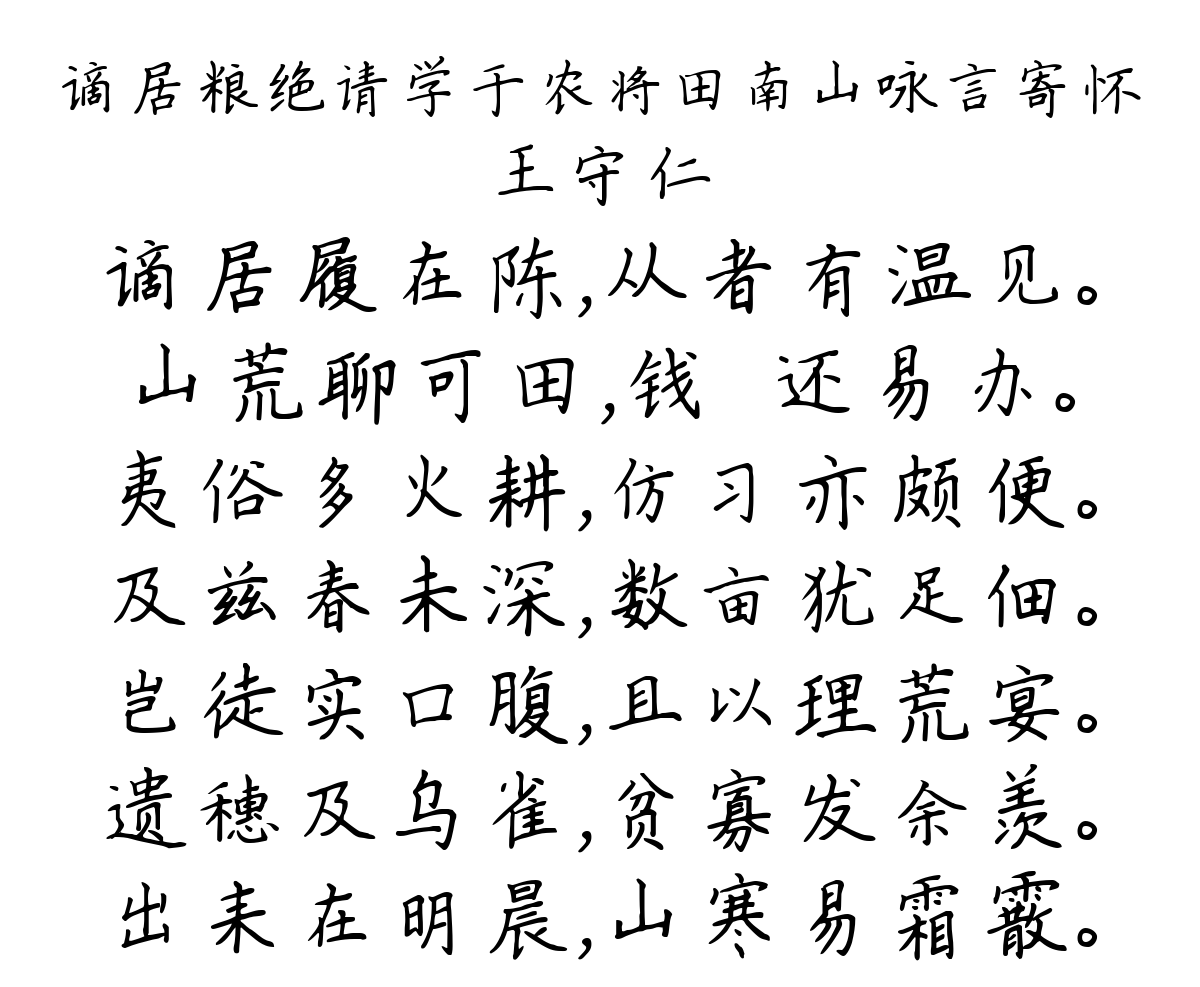 谪居粮绝请学于农将田南山咏言寄怀
王守仁
谪居履在陈,从者有温见。
山荒聊可田,钱 还易办。
夷俗多火耕,仿习亦颇便。
及兹春未深,数亩犹足佃。
岂徒实口腹,且以理荒宴。
遗穗及乌雀,贫寡发余羡。
出耒在明晨,山寒易霜霰。